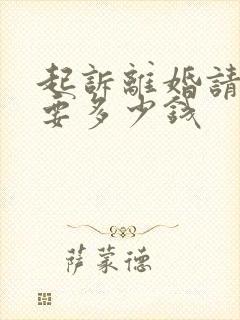 起訴離婚請
要多少錢
萨蒙德